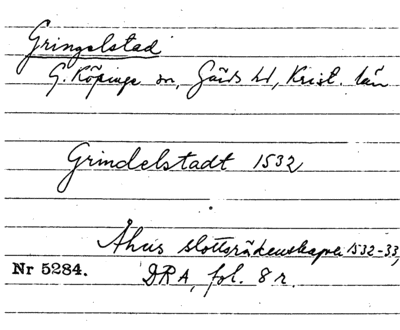 Gringelstad
G. Köpinge sn, Gärds hd, Krist. län
Grindelstadt 1532
Åhus slottsräkenskaper 1532-33,
Nr 5284. DRA, fol. 8 r.